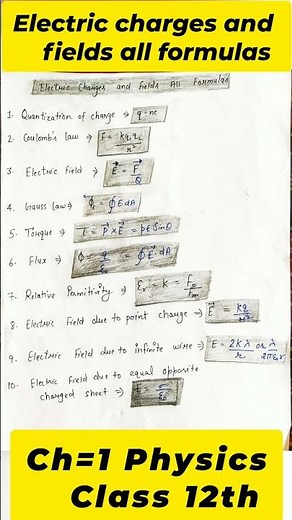 Electric charges and
fields all formulas
Electric Charges and fields All Formulas
1. Quantization of charge → q=ne
2. Coulomb's law → F = kq₁q₂/r²
3. Electric field → E⃗ = F⃗/Q
4. Gauss law → ϕ = ∮EdA
5. Torque → τ = P⃗×E⃗ = PESinθ
6. Flux → ϕ = q/ε₀ = ∮E⃗.dA
7. Relative Permitivity → εr = K = F₀/Fm
8. Electric Field due to point charge → E⃗ = kq/r²
9. Electric Field due to infinite wire → E = 2Kλ/r or λ/2πε₀r
10. Electric Field due to equal opposite
charged sheet → E = σ/ε₀
Ch=1 Physics
Class 12th